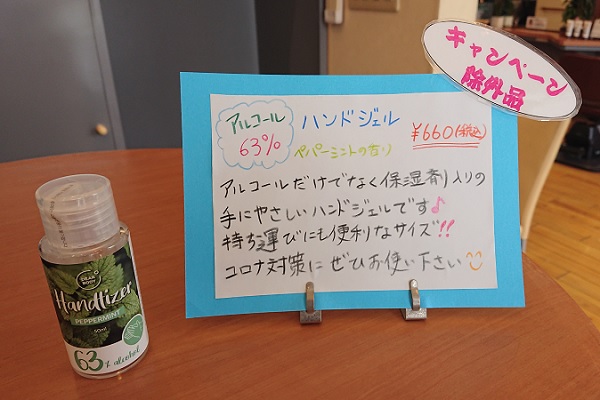 キャンペーン
除外品
アルコール
63%
ハンドジェル
ペパーミントの香り
¥660(税込)
アルコールだけでなく保湿剤入りの
手にやさしいハンドジェルです♪
持ち運びにも便利なサイズ!!
コロナ対策にぜひお使い下さい
Handtizer
PEPPERMINT
50ml
63% alcohol